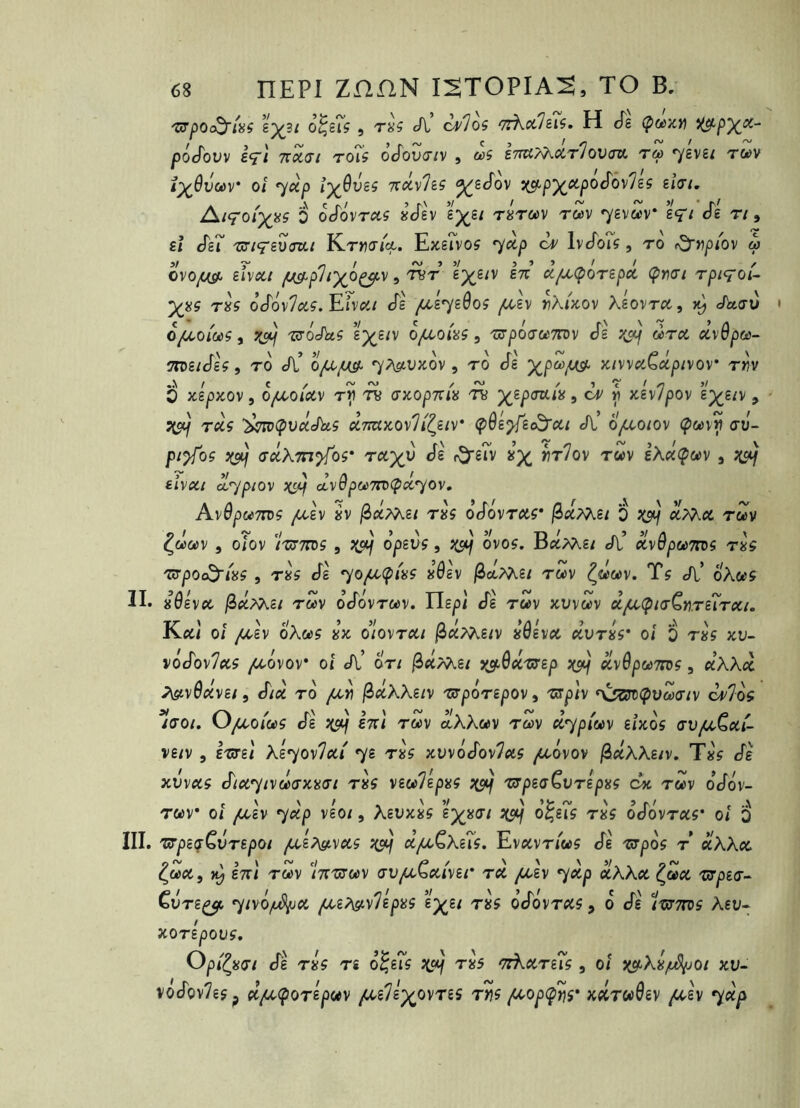 68 ΠΕΡΙ ΖΩΩΝ ΙΣΤΟΡΙΑΣ, ΤΟ Β.
προσθίους ἔχει ὀξεῖς, τοὺς δ' ἐντὸς πλατεῖς. Η δὲ φώκη καρχα-
ρόδουν ἐστὶ πᾶσι τοῖς ὀδοῦσιν, ὡς ἐπαλλάττουσα τῷ γένει τῶν
ἰχθύων· οἱ γὰρ ἰχθύες πάντες σχεδὸν καρχαρόδοντές εἰσι.
Διστοίχους δὲ ὀδόντας οὐδὲν ἔχει τούτων τῶν γενῶν· ἔστι δέ τι,
εἰ δεῖ πιστεῦσαι Κτησίᾳ. Εκεῖνος γὰρ ἐν Ἰνδοῖς, τὸ θηρίον ᾧ
ὄνομα εἶναι μαρτιχόραν, τοῦτ' ἔχειν ἐπ' ἀμφότερά φησι τριστοί-
χους τοὺς ὀδόντας. Εἶναι δὲ μέγεθος μὲν ἡλίκον λέοντα, καὶ δασὺ
ὁμοίως, καὶ πόδας ἔχειν ὁμοίους, πρόσωπον δὲ καὶ ὦτα ἀνθρω-
ποειδὲς, τὸ δ' ὄμμα γλαυκὸν, τὸ δὲ χρῶμα κινναβάρινον· τὴν
δὲ κέρκον, ὁμοίαν τῇ τοῦ σκορπίου τοῦ χερσαίου, ἐν ᾗ κέντρον ἔχειν,
καὶ τὰς ἀποφυάδας ἀπακοντίζειν· φθέγγεσθαι δ' ὅμοιον φωνῇ σύ-
ριγγος καὶ σάλπιγγος· ταχὺ δὲ θεῖν οὐχ ἧττον τῶν ἐλάφων, καὶ
εἶναι ἄγριον καὶ ἀνθρωποφάγον.
Ανθρωπος μὲν οὖν βάλλει τοὺς ὀδόντας· βάλλει δὲ καὶ ἄλλα τῶν
ζώων, οἷον ἵππος, καὶ ὀρεύς, καὶ ὄνος. Βάλλει δ' ἄνθρωπος τοὺς
προσθίους, τοὺς δὲ γομφίους οὐθὲν βάλλει τῶν ζώων. Υς δ' ὅλως
II. οὐθένα βάλλει τῶν ὀδόντων. Περὶ δὲ τῶν κυνῶν ἀμφισβητεῖται.
Καὶ οἱ μὲν ὅλως οὐκ οἴονται βάλλειν οὐθένα αὐτούς· οἱ δὲ τοὺς κυ-
νόδοντας μόνον· οἱ δ' ὅτι βάλλει καθάπερ καὶ ἄνθρωπος, ἀλλὰ
λανθάνει, διὰ τὸ μὴ βάλλειν πρότερον, πρὶν ὑποφυῶσιν ἐντὸς
ἴσοι. Ομοίως δὲ καὶ ἐπὶ τῶν ἄλλων τῶν ἀγρίων εἰκὸς συμβαί-
νειν, ἐπεὶ λέγονταί γε τοὺς κυνόδοντας μόνον βάλλειν. Τοὺς δὲ
κύνας διαγινώσκουσι τοὺς νεωτέρους καὶ πρεσβυτέρους ἐκ τῶν ὀδόν-
των· οἱ μὲν γὰρ νέοι, λευκοὺς ἔχουσι καὶ ὀξεῖς τοὺς ὀδόντας· οἱ δὲ
III. πρεσβύτεροι μέλανας καὶ ἀμβλεῖς. Εναντίως δὲ πρὸς τ' ἄλλα
ζῶα, καὶ ἐπὶ τῶν ἵππων συμβαίνει· τὰ μὲν γὰρ ἄλλα ζῶα πρεσ-
βύτερα γινόμενα μελαντέρους ἔχει τοὺς ὀδόντας, ὁ δὲ ἵππος λευ-
κοτέρους.
Ορίζουσι δὲ τούς τε ὀξεῖς καὶ τοὺς πλατεῖς, οἱ καλούμενοι κυ-
νόδοντες, ἀμφοτέρων μετέχοντες τῆς μορφῆς· κάτωθεν μὲν γὰρ